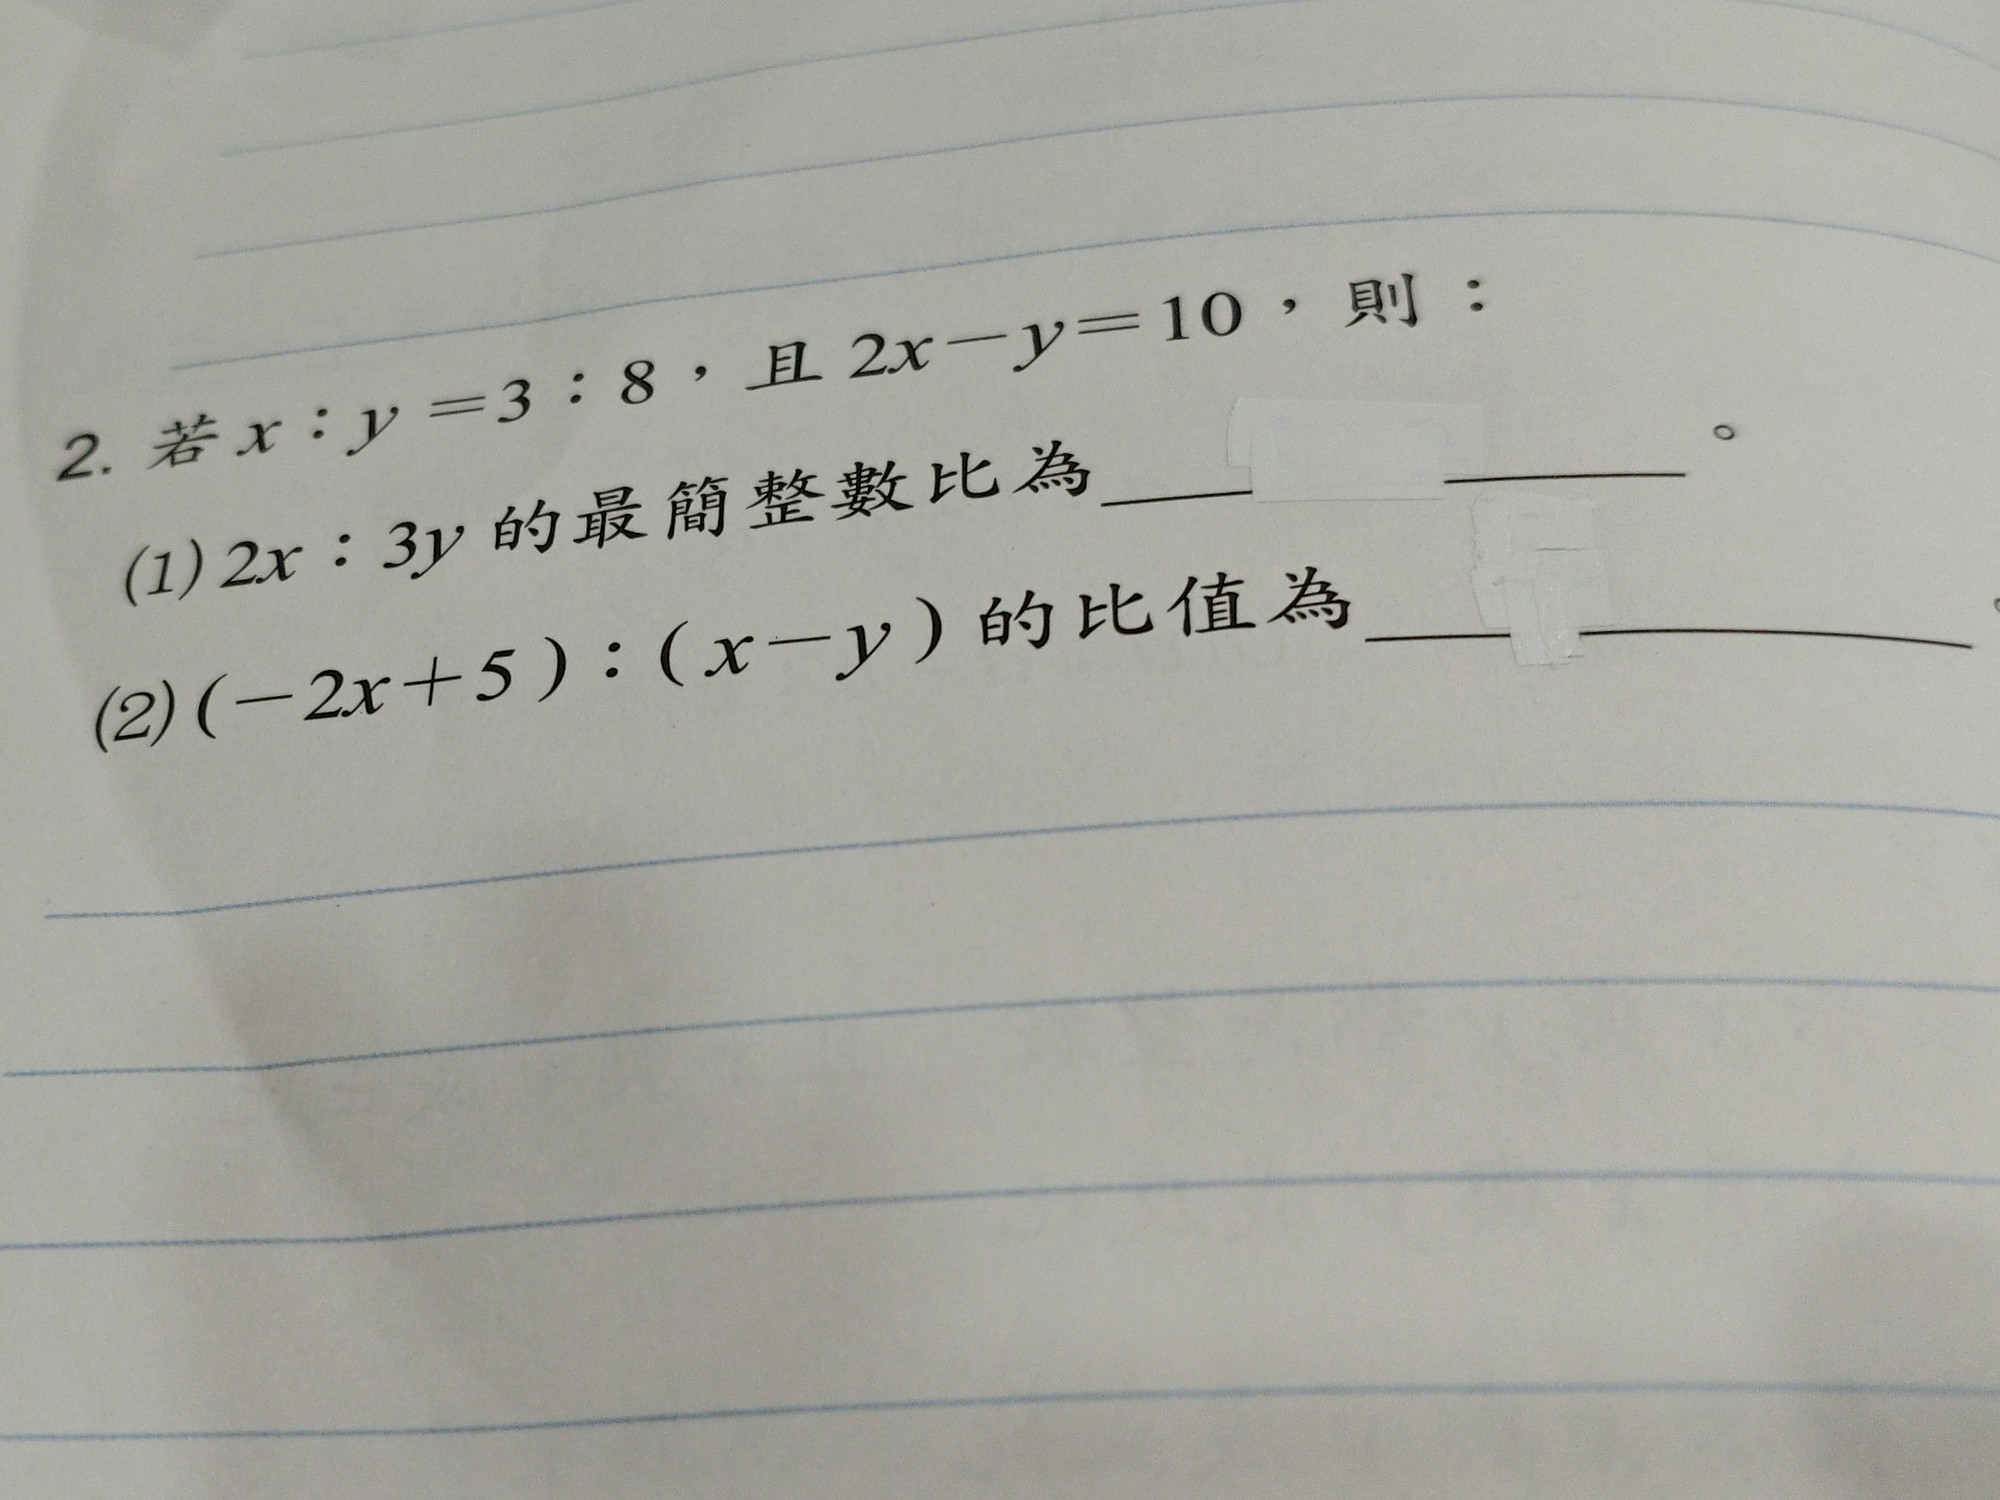 2. 若 x：y＝3：8，且 2x－y＝10，則：
(1) 2x：3y 的最簡整數比為＿＿＿＿＿＿。
(2) (－2x＋5)：(x－y) 的比值為＿＿＿＿＿＿。